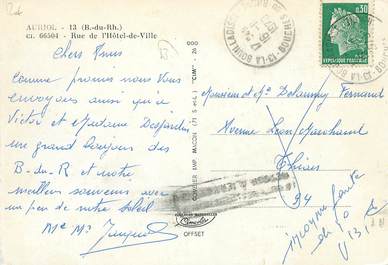 AURIOL - 13 (B.-du-Rh.)
CL 66504 - Rue de l'Hôtel-de-Ville
Chers Amis
Comme promis nous Vous
envoyons ainsi qu'à
Victor et Madame Desjardins
un grand bonjour des
B-du-R et notre
meilleur souvenir avec
un peu de notre Soleil
Me Mr
OOO 26
"CIM"
COMBIER IMP. MACON (71 S.-et-L.)
OFFSET
13-LA BOUILLADISSE
BOUCHES DU RHONE
0,30
REPUBLIQUE FRANCAISE
Monsieur & Me Delaunay Fernand
Avenue Léon Marchand
Thiais
94
inconnu